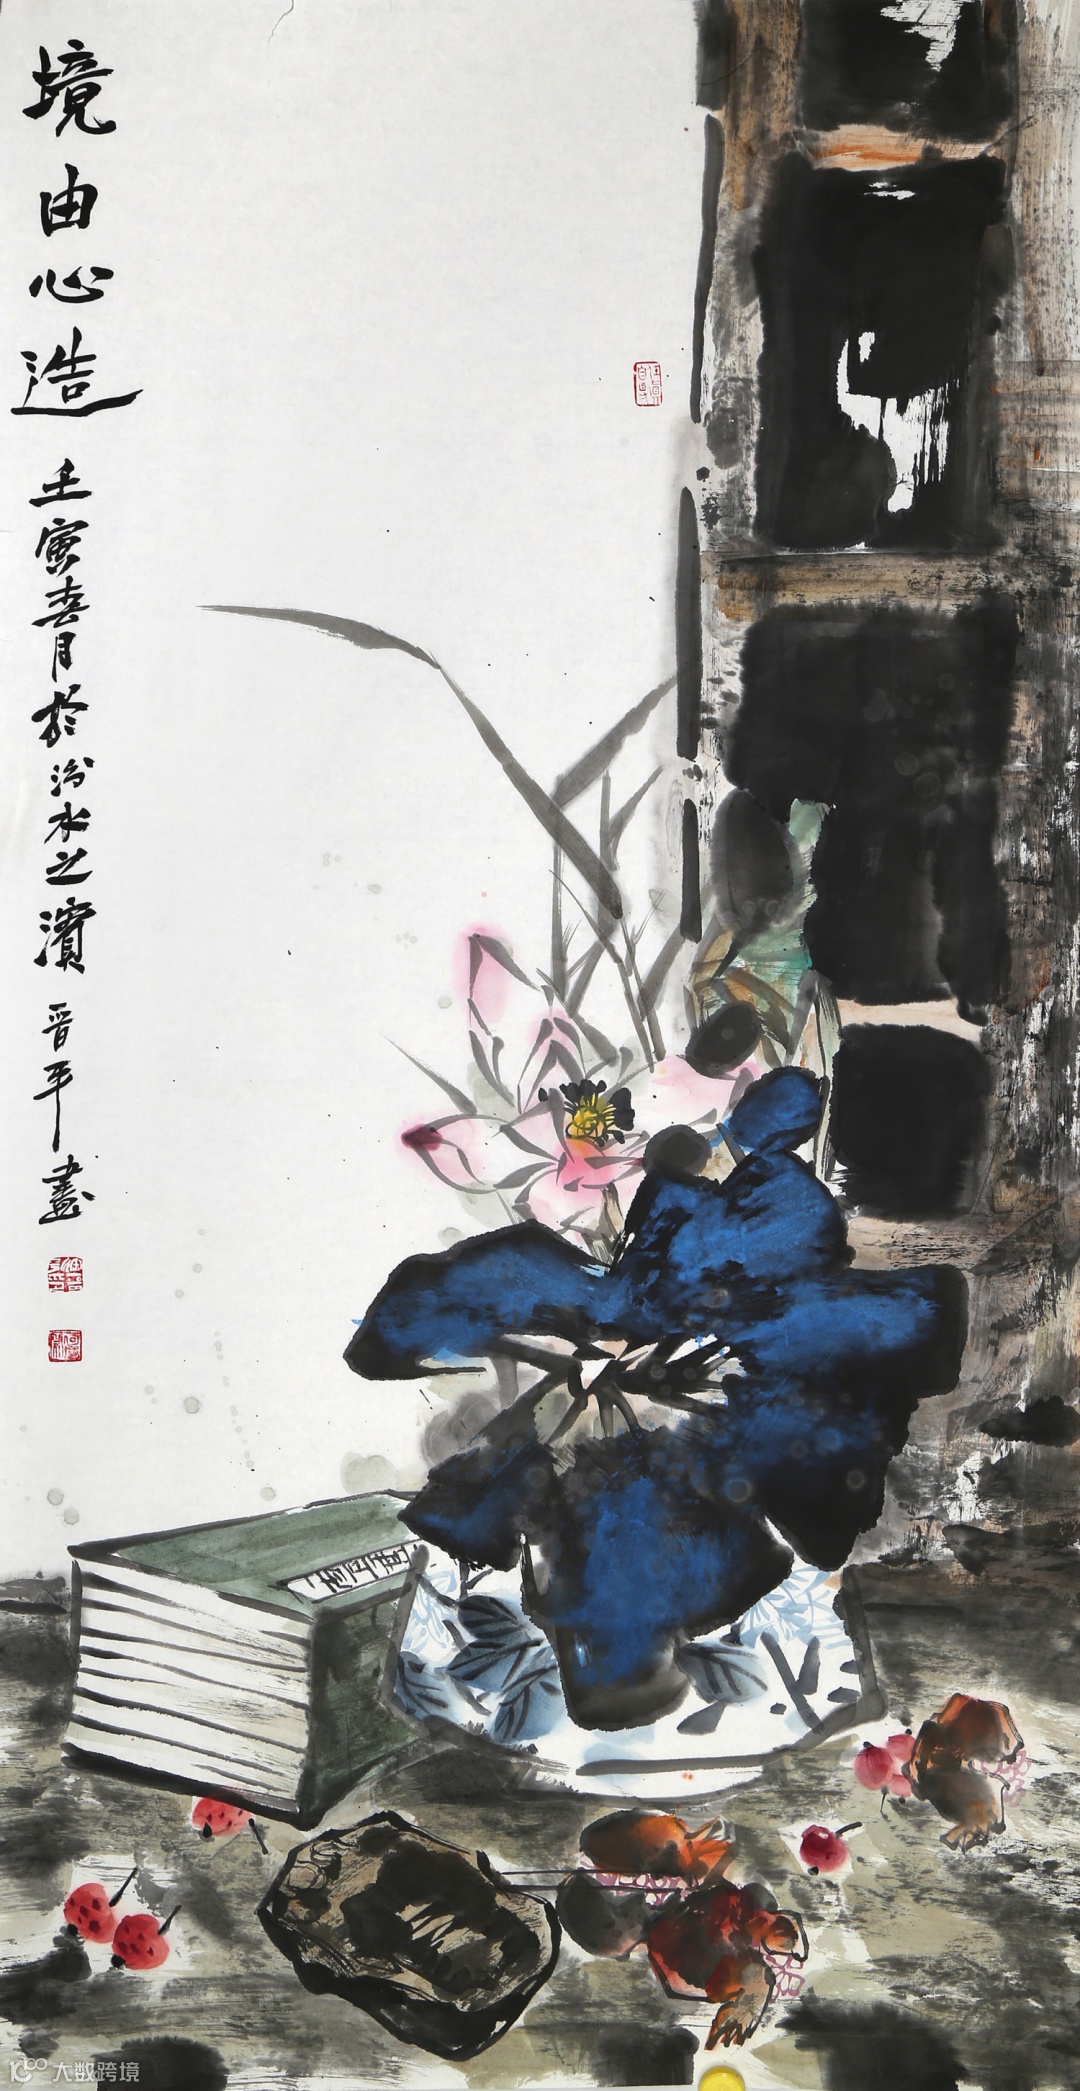 境由心造 壬寅春月於汾水之濱 晋平畫
大数跨境